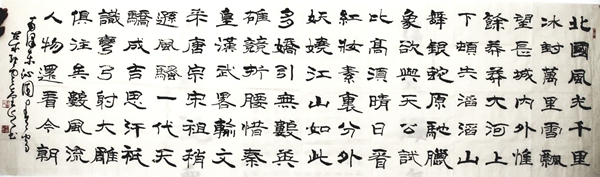 北國風光千里
冰封萬里雪飄
望長城內外惟
餘莽莽大河上
下頓失滔滔山
舞銀蛇原馳臘
象欲與天公試
比高須晴日看
紅妝素裹分外
妖嬈江山如此
多嬌引無數英
雄競折腰惜秦
皇漢武略輸文
采唐宗宋祖稍
遜風騷一代天
驕成吉思汗祇
識彎弓射大雕
俱往矣數風流
人物還看今朝
毛澤東沁園春雪